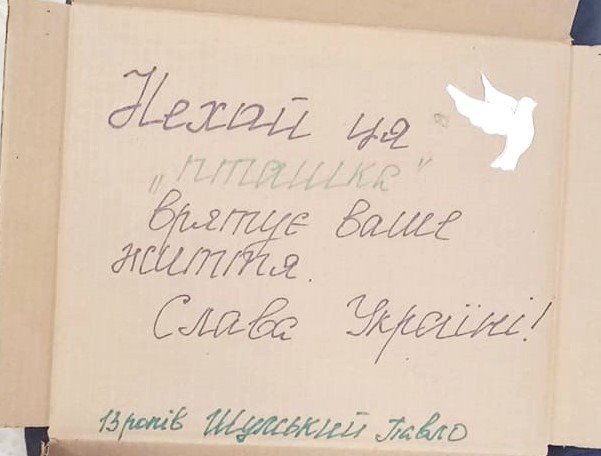 Нехай ця
„пташка"
врятує ваше
життя.
Слава Україні!
13 років Шумський Павло